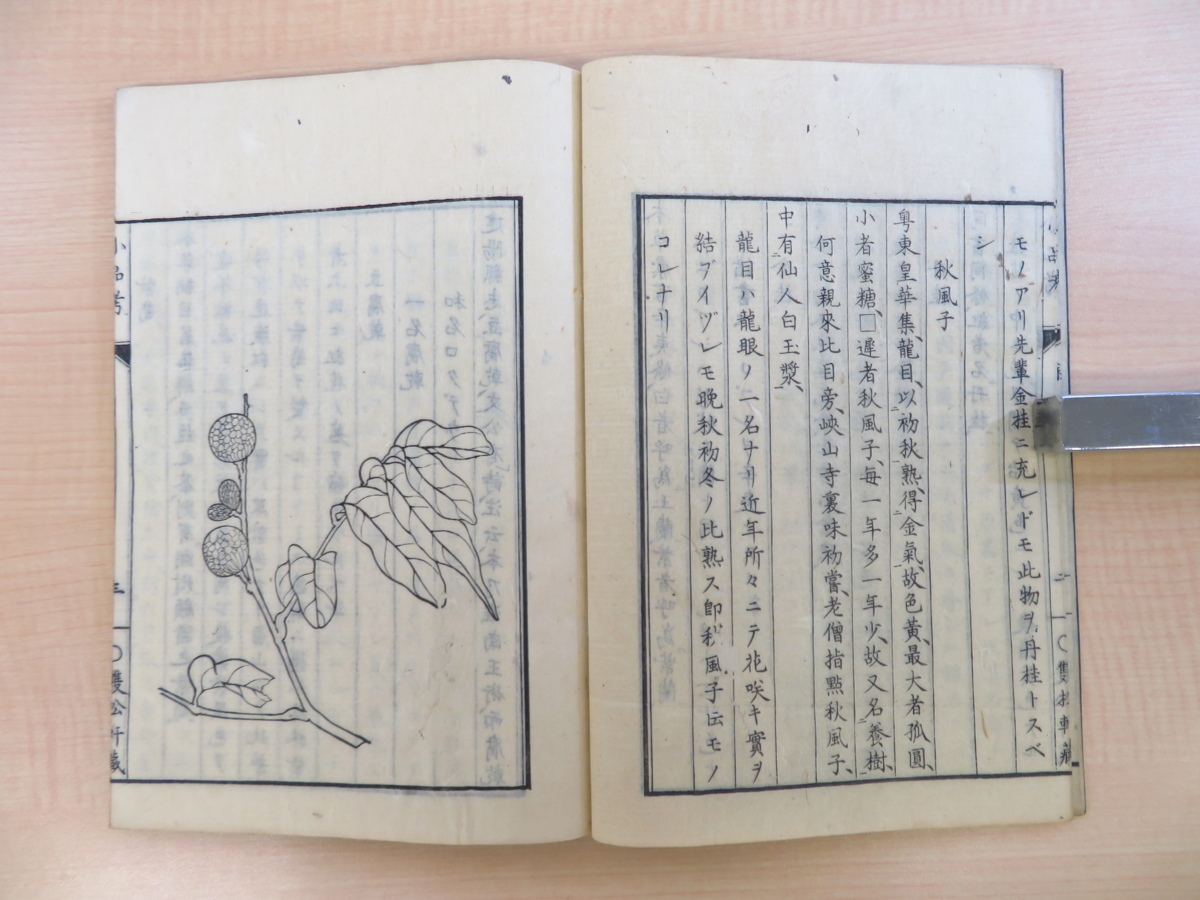 モノアリ先輩金桂ニ充レドモ此物ヲ丹桂トスベ
シ
秋風子
粤東皇華集、龍目、以初秋熟、得金氣、故色黃、最大者孤圓、
小者蜜糖、□遲者秋風子、每一年多一年少、故又名養樹、
何意親來比目旁、峽山寺裏味初嘗、老僧指點秋風子、
中有仙人白玉漿、
龍目ハ龍眼ノ一名ナリ近年所々ニテ花咲キ實ヲ
結ブイヅレモ晚秋初冬ノ比熟ス即秋風子伝モノ
コレナリ
小品考